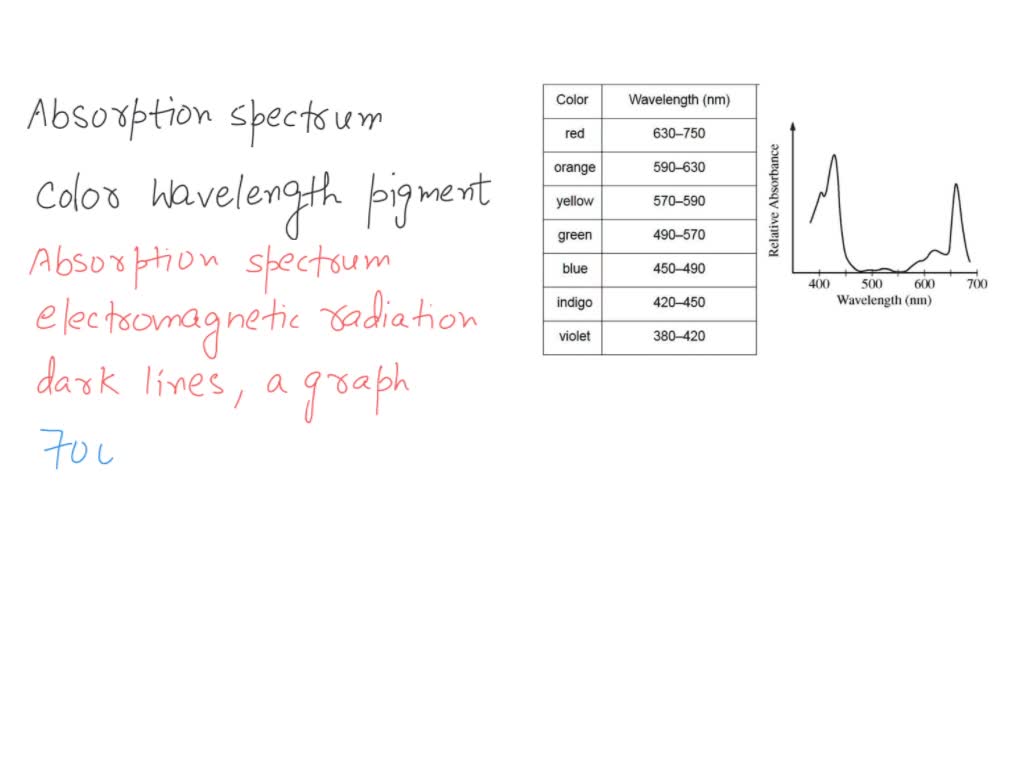 Absorption spectrum
Color Wavelength pigment
Absorption spectrum
electromagnetic radiation
dark lines, a graph
700
Color Wavelength (nm)
red 630–750
orange 590–630
yellow 570–590
green 490–570
blue 450–490
indigo 420–450
violet 380–420
Relative Absorbance
400 500 600 700
Wavelength (nm)